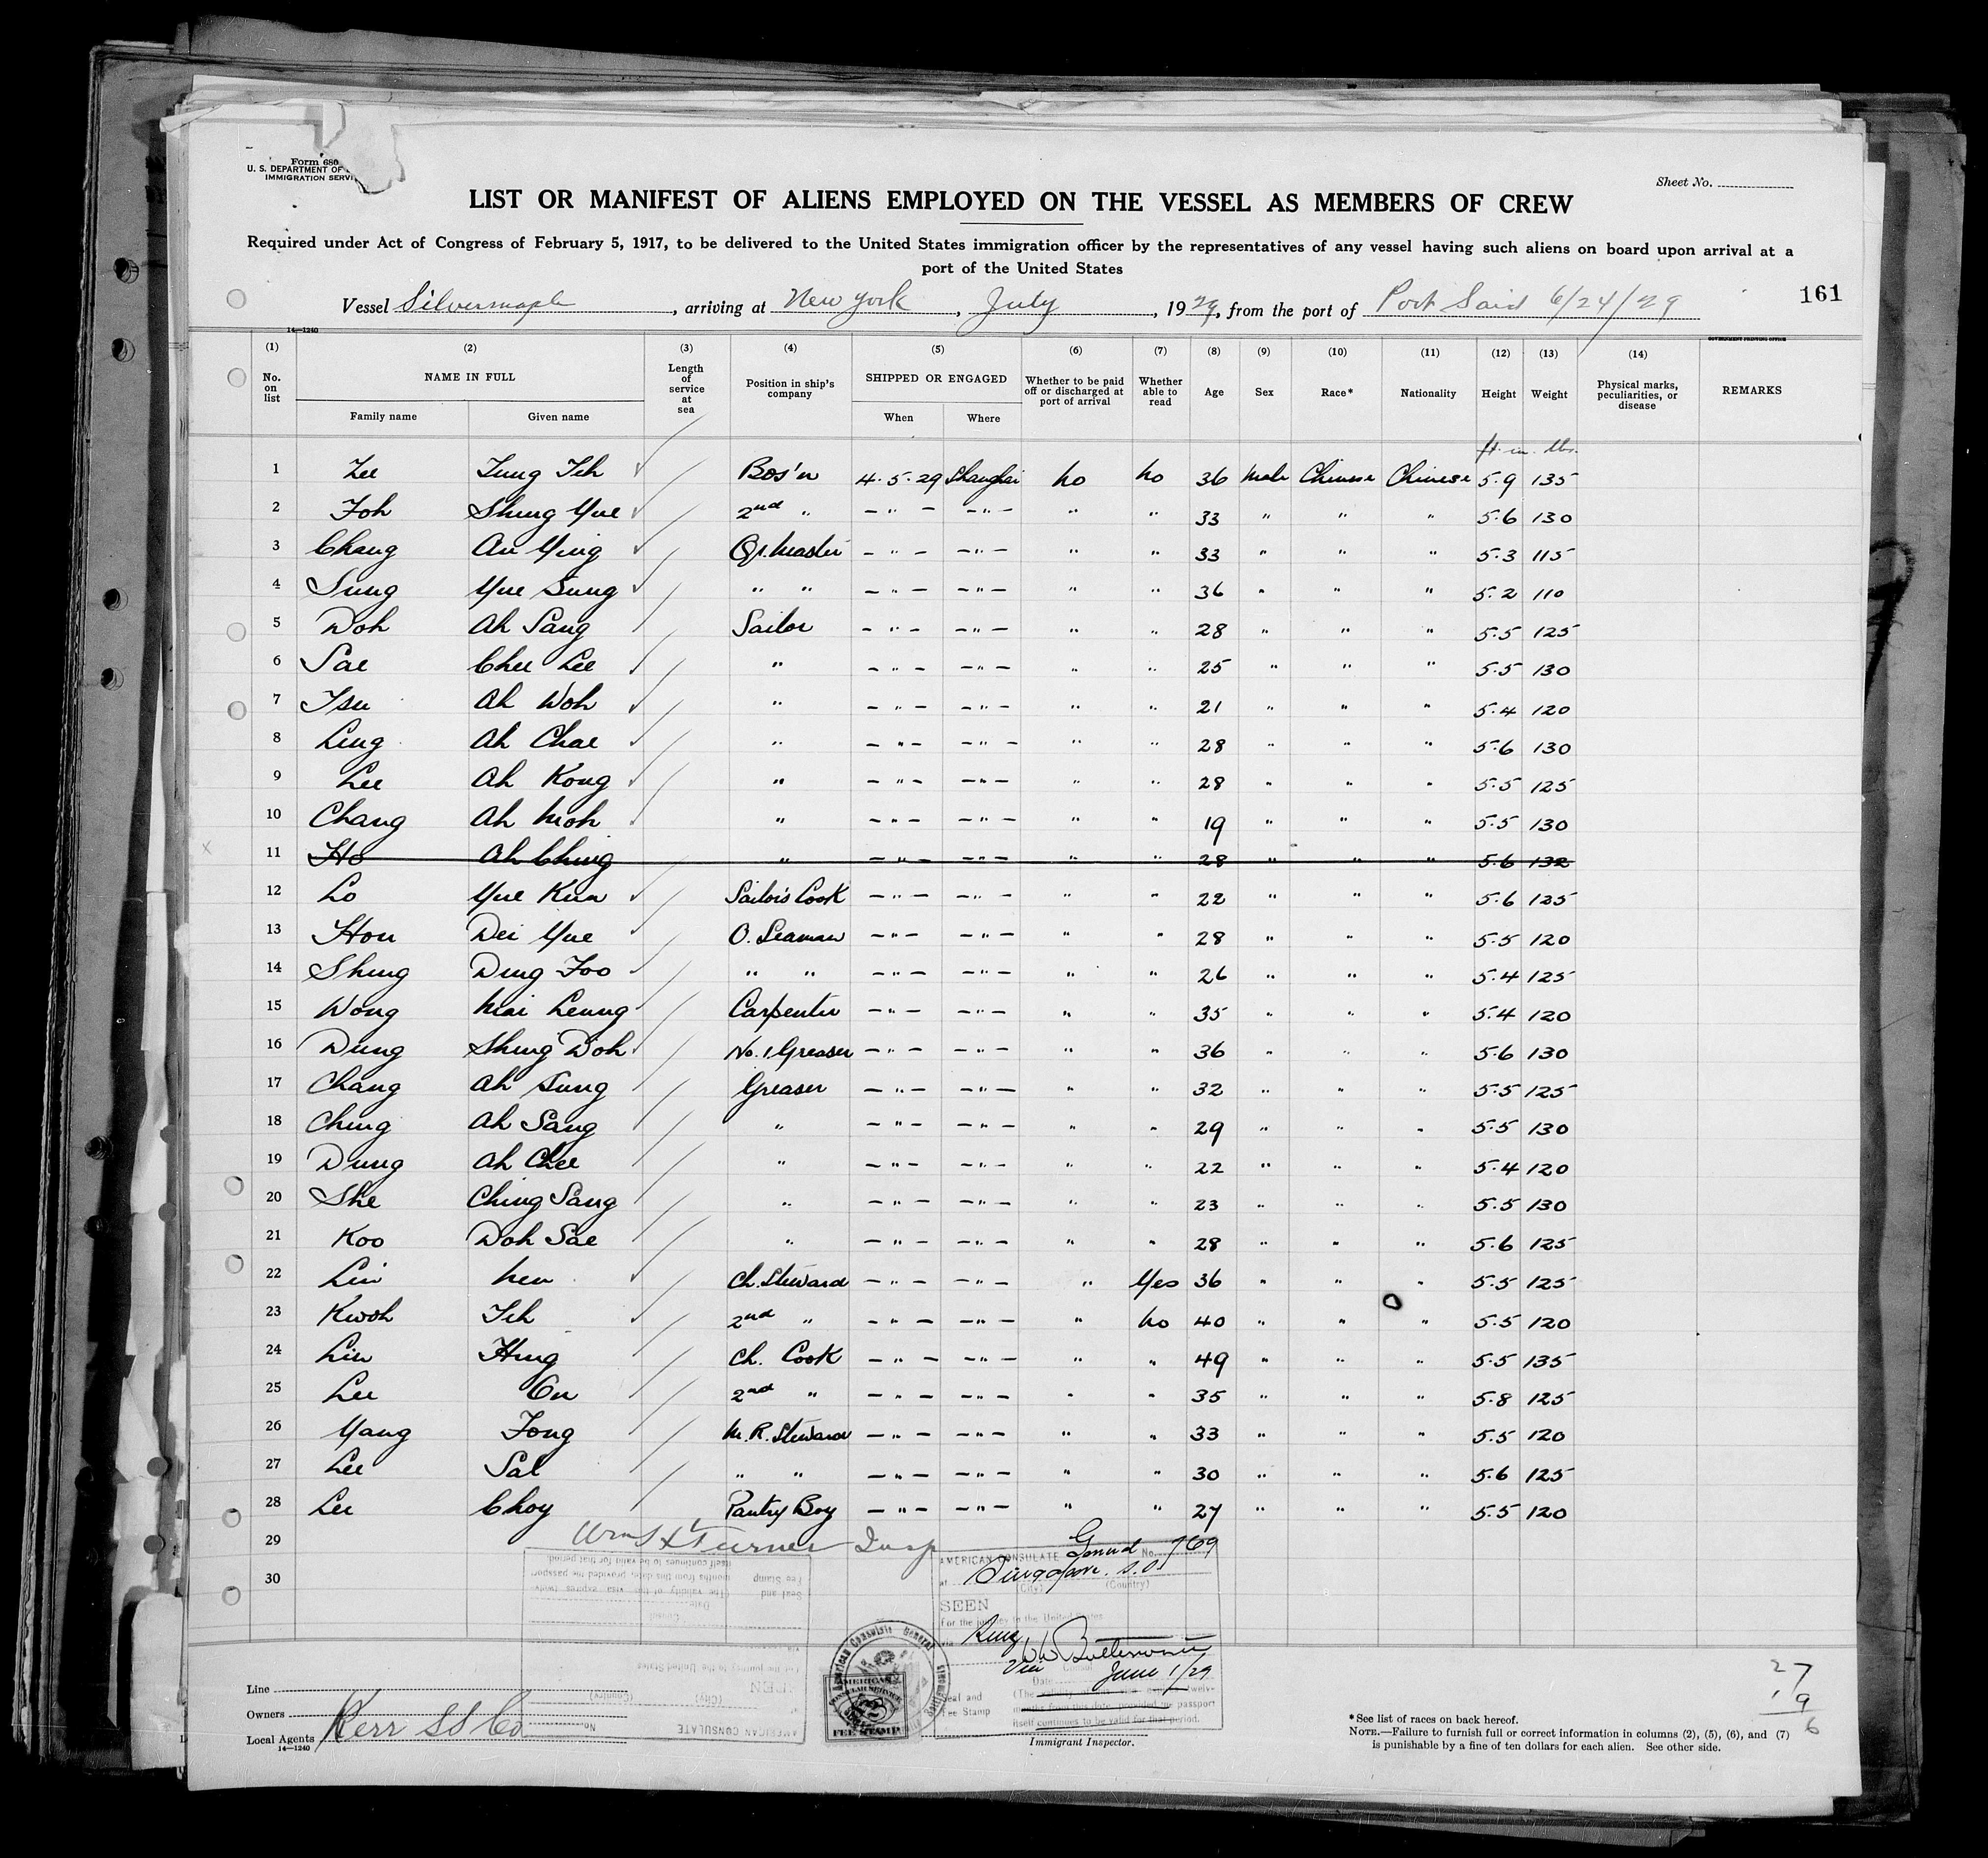 Form 680
U. S. DEPARTMENT OF
IMMIGRATION SERVI
Sheet No.
LIST OR MANIFEST OF ALIENS EMPLOYED ON THE VESSEL AS MEMBERS OF CREW
Required under Act of Congress of February 5, 1917, to be delivered to the United States immigration officer by the representatives of any vessel having such aliens on board upon arrival at a
port of the United States
Vessel Silvermaple, arriving at New York, July, 1929, from the port of Port Said 6/24/29
161
14—1240
GOVERNMENT PRINTING OFFICE
(1) (2) (3) (4) (5) (6) (7) (8) (9) (10) (11) (12) (13) (14)
No. on list NAME IN FULL Family name Given name Length of service at sea Position in ship's company SHIPPED OR ENGAGED When Where Whether to be paid off or discharged at port of arrival Whether able to read Age Sex Race* Nationality Height Weight Physical marks, peculiarities, or disease REMARKS
ft. in. lbs.
1 Lee Tung Teh Bos'n 4.5.29 Shanghai No No 36 Male Chinese Chinese 5.9 135
2 Foh Shing Yue 2nd " — " — — " — " " 33 " " " 5.6 130
3 Chang An Ying Qr. Master — " — — " — " " 33 " " " 5.3 115
4 Sung Yue Sung " " — " — — " — " " 36 " " " 5.2 110
5 Doh Ah Sang Sailor — " — — " — " " 28 " " " 5.5 125
6 Sae Chee Lee " — " — — " — " " 25 " " " 5.5 130
7 Tsu Ah Woh " — " — — " — " " 21 " " " 5.4 120
8 Ling Ah Chae " — " — — " — " " 28 " " " 5.6 130
9 Lee Ah Kong " — " — — " — " " 28 " " " 5.5 125
10 Chang Ah Moh " — " — — " — " " 19 " " " 5.5 130
11 Ho Ah Ching " — " — — " — " " 28 " " " 5.6 132
12 Lo Yue Kun Sailor's Cook — " — — " — " " 22 " " " 5.6 125
13 Hou Dei Yue O. Seaman — " — — " — " " 28 " " " 5.5 120
14 Shing Ding Foo " " — " — — " — " " 26 " " " 5.4 125
15 Wong Mai Leung Carpenter — " — — " — " " 35 " " " 5.4 120
16 Dung Shing Doh No. 1 Greaser — " — — " — " " 36 " " " 5.6 130
17 Chang Ah Sung Greaser — " — — " — " " 32 " " " 5.5 125
18 Ching Ah Sang " — " — — " — " " 29 " " " 5.5 130
19 Dung Ah Chee " — " — — " — " " 22 " " " 5.4 120
20 She Ching Sang " — " — — " — " " 23 " " " 5.5 130
21 Koo Doh Sae " — " — — " — " " 28 " " " 5.6 125
22 Lin Nen Ch. Steward — " — — " — " Yes 36 " " " 5.5 125
23 Kwoh Teh 2nd " — " — — " — " No 40 " " " 5.5 120
24 Lin Hing Ch. Cook — " — — " — " " 49 " " " 5.5 135
25 Lee On 2nd " — " — — " — " " 35 " " " 5.8 125
26 Yang Fong M. R. Steward — " — — " — " " 33 " " " 5.5 120
27 Lee Sal " " — " — — " — " " 30 " " " 5.6 125
28 Lee Choy Pantry Boy — " — — " — " " 27 " " " 5.5 120
29
30
Turner Insp
AMERICAN CONSULATE General No. 769
at Singapore. S.S.
(City) (Country)
SEEN
For the journey to the United States
W W Butterworth
Vice Consul
Date June 1/29
(The validity of twelve
months from this date, provided the passport
itself continues to be valid for that period.
Seal and
Fee Stamp
American Consulate General
AMERICAN
CONSULAR SERVICE
FEE STAMP
AMERICAN CONSULATE No.
(City) (Country)
SEEN
For the journey to the United States
Consul
Date
(The validity of this visa expires twelve
months from this date, provided the passport
itself continues to be valid for that period.
Seal and
Fee Stamp
Line
Owners
Local Agents Kerr SS Co
14—1240
Immigrant Inspector.
27
19
6
*See list of races on back hereof.
NOTE.—Failure to furnish full or correct information in columns (2), (5), (6), and (7)
is punishable by a fine of ten dollars for each alien. See other side.